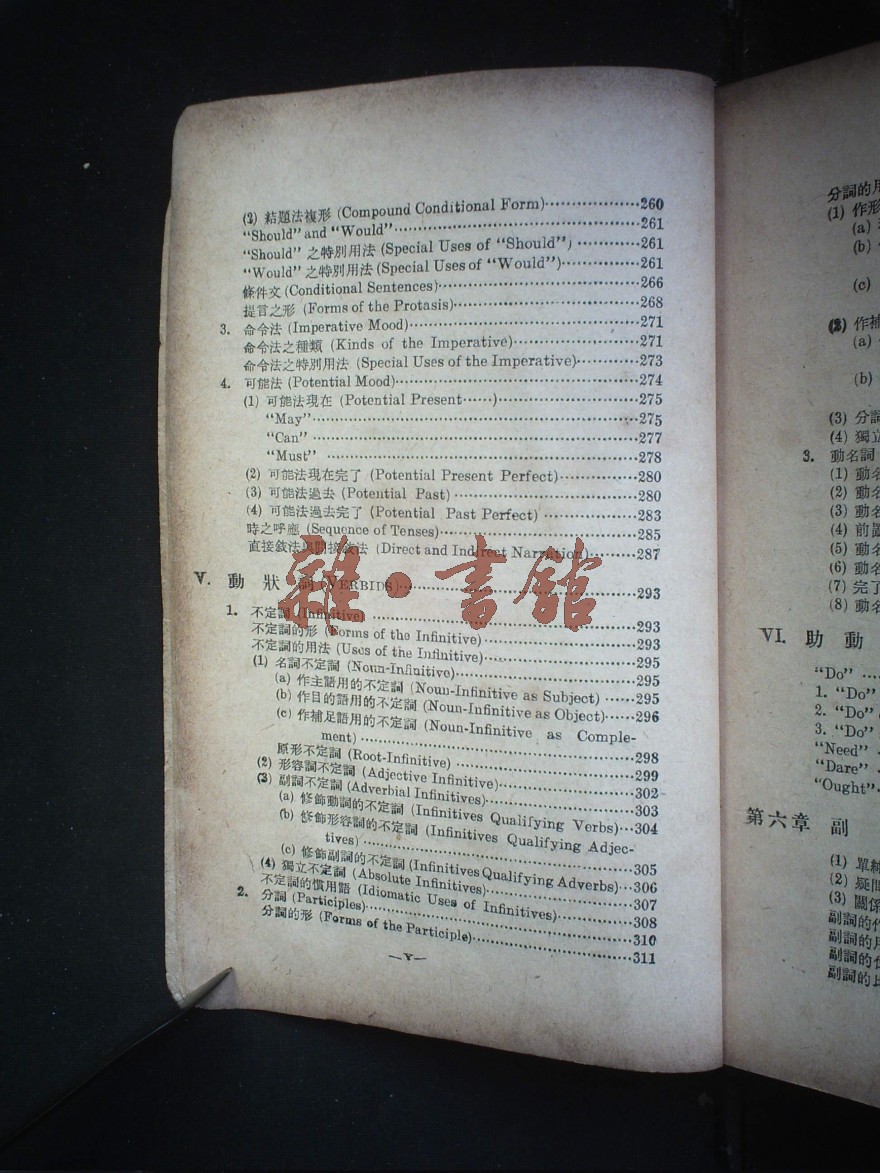 (3) 結題法複形 (Compound Conditional Form)····················260
"Should" and "Would"····················261
"Should" 之特別用法 (Special Uses of "Should") ··············261
"Would" 之特別用法 (Special Uses of "Would")················261
條件文 (Conditional Sentences)····················266
提言之形 (Forms of the Protasis)····················268
3. 命令法 (Imperative Mood)····················271
命令法之種類 (Kinds of the Imperative)····················271
命令法之特別用法 (Special Uses of the Imperative)·············273
4. 可能法 (Potential Mood)····················274
(1) 可能法現在 (Potential Present······)····················275
"May"····················275
"Can" ····················277
"Must" ····················278
(2) 可能法現在完了 (Potential Present Perfect)················280
(3) 可能法過去 (Potential Past) ····················280
(4) 可能法過去完了 (Potential Past Perfect) ················283
時之呼應 (Sequence of Tenses)····················285
直接敍法與間接敍法 (Direct and Indirect Narration)············287
V. 動狀詞 (VERBIDS)····················293
1. 不定詞 (Infinitive) ····················293
不定詞的形 (Forms of the Infinitive)····················293
不定詞的用法 (Uses of the Infinitive)····················295
(1) 名詞不定詞 (Noun-Infinitive)····················295
(a) 作主語用的不定詞 (Noun-Infinitive as Subject) ······295
(b) 作目的語用的不定詞 (Noun-Infinitive as Object)······296
(c) 作補足語用的不定詞 (Noun-Infinitive as Comple-
ment) ····················298
原形不定詞 (Root-Infinitive) ····················299
(2) 形容詞不定詞 (Adjective Infinitive)····················302
(3) 副詞不定詞 (Adverbial Infinitives)····················303
(a) 修飾動詞的不定詞 (Infinitives Qualifying Verbs)···304
(b) 修飾形容詞的不定詞 (Infinitives Qualifying Adjec-
tives) ····················305
(c) 修飾副詞的不定詞 (Infinitives Qualifying Adverbs)···306
(4) 獨立不定詞 (Absolute Infinitives)····················307
不定詞的慣用語 (Idiomatic Uses of Infinitives)··············308
2. 分詞 (Participles)····················310
分詞的形 (Forms of the Participle)····················311
—V—
雜·書館
分詞的用
(1) 作形
(a)
(b)
(c)
(2) 作補
(a)
(b)
(3) 分詞
(4) 獨立
3. 動名詞
(1) 動名
(2) 動名
(3) 動名
(4) 前置
(5) 動名
(6) 動名
(7) 完了
(8) 動名
VI. 助動
"Do" ····
1. "Do"
2. "Do"
3. "Do"
"Need"
"Dare"
"Ought"
第六章 副
(1) 單純
(2) 疑問
(3) 關係
副詞的作
副詞的用
副詞的位
副詞的比